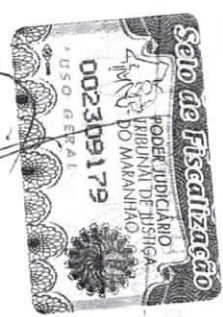 Selo de Fiscalização
PODER JUDICIÁRIO
TRIBUNAL DE JUSTIÇA
DO MARANHÃO
002309179
USO GERAL